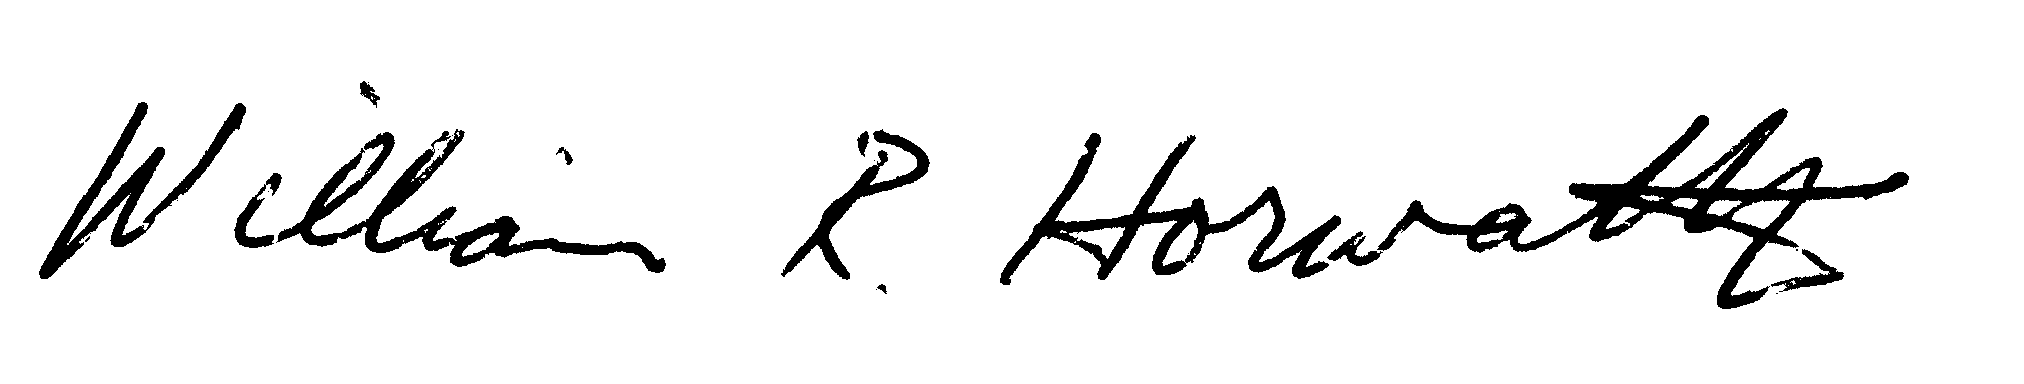 William R. Horwath